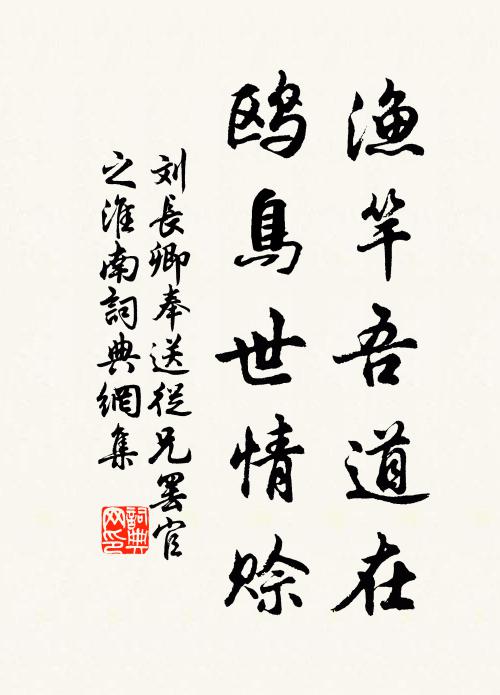 渔竿吾道在
鸥鸟世情赊
刘長卿奉送從兄罢官
之淮南詞典網集
詞典
网印